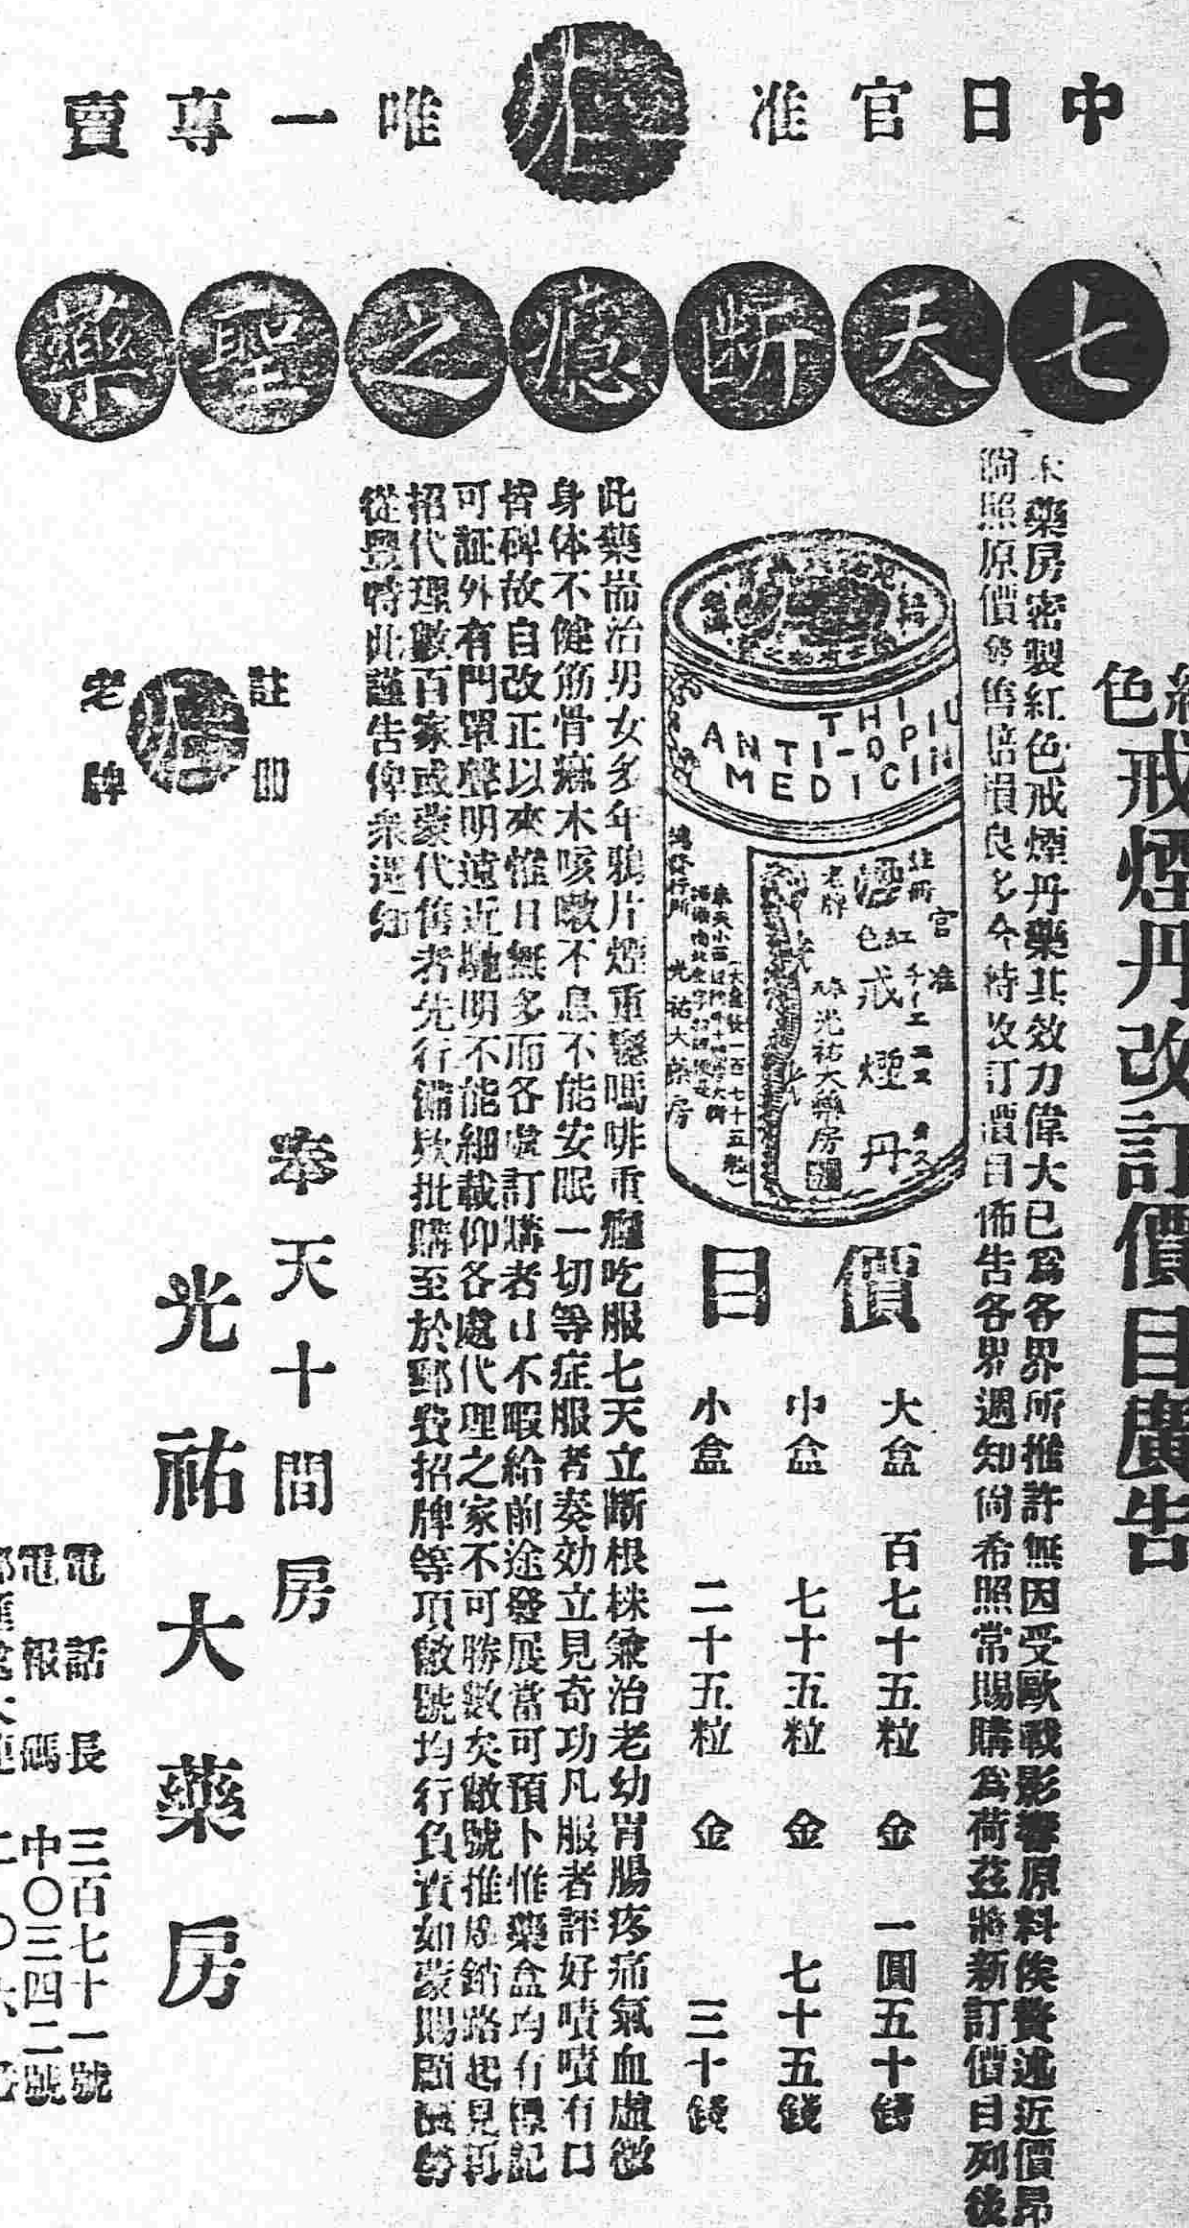 中日官准 唯一專賣
七天斷癮之聖藥
色戒煙丹改訂價目廣告
藥房密製紅色戒煙丹藥其效力偉大已為各界所推許無因受歐戰影響原料俟贅述近價昂
照原價售賠損良多今特改訂價目佈告各界週知尚希照常賜購為荷茲將新訂價目列後
THI
ANTI-OPIU
MEDICIN
註冊
官准
紅色戒煙丹
老牌
光祐大藥房
發行所 光祐大藥房
價目
大盒 百七十五粒 金 一圓五十錢
中盒 七十五粒 金 七十五錢
小盒 二十五粒 金 三十錢
此藥耑治男女多年鴉片煙重癮嗎啡重癮吃服七天立斷根株兼治老幼胃腸疼痛氣血虛
身体不健筋骨麻木咳嗽不息不能安眠一切等症服者奏効立見奇功凡服者評好嘖嘖有口
皆碑故自改正以來惟日無多而各處訂購者日不暇給前途發展當可預卜惟藥盒均有標記
可証外有門單聲明遠近馳明不能細載仰各處代理之家不可勝數矣敝號推廣銷路起見再
招代理數百家或蒙代售者先行備欵批購至於郵費招牌等項敝號均行負責如蒙賜顧
從豐特此謹告俾衆週知
註冊
老牌
奉天十間房
光祐大藥房
電話長三百七十一號
電報碼中〇三四二號